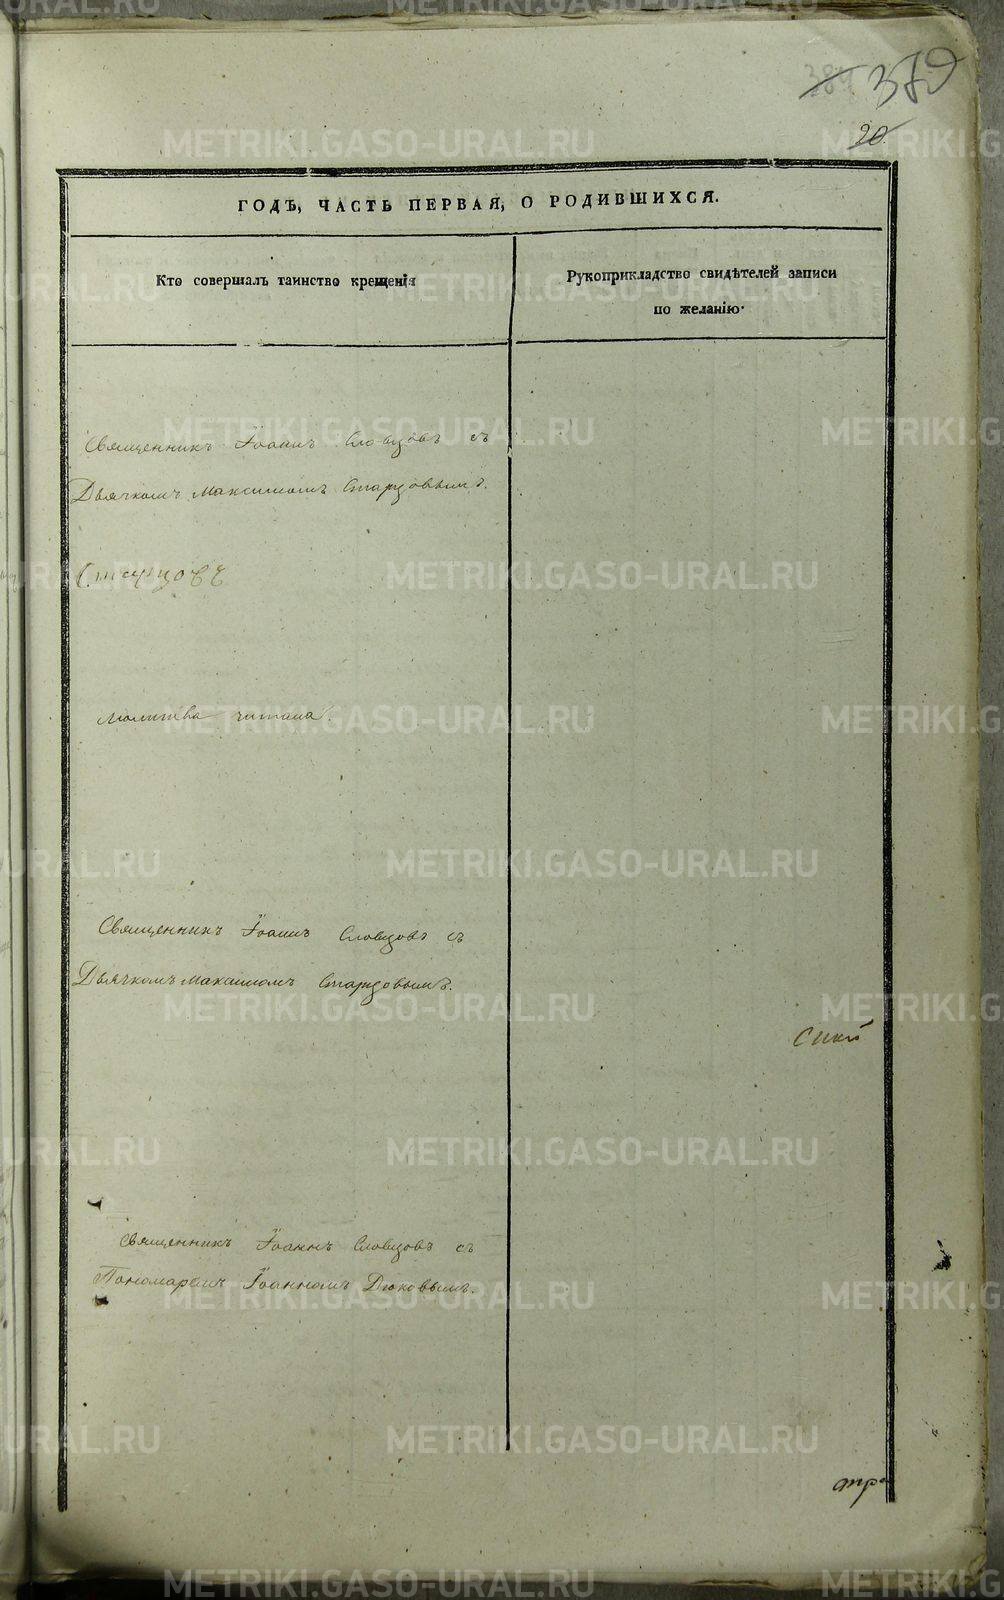 384 379
20
ГОДЪ, ЧАСТЬ ПЕРВАЯ, О РОДИВШИХСЯ.
Кто совершалъ таинство крещенія
Рукоприкладство свидѣтелей записи
по желанію.
Священникъ Іоаннъ Словцовъ съ
Дьячкомъ Максимомъ Стариовымъ.
Молитва читана.
Священникъ Іоаннъ Словцовъ съ
Дьячкомъ Максимомъ
Священникъ Іоаннъ Словцовъ съ
Пономаремъ Іоанномъ Дюковымъ.
METRIKI.GASO-URAL.RU